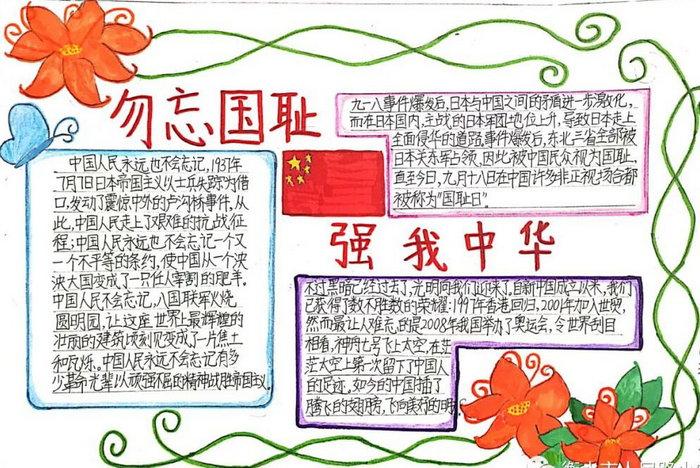 勿忘国耻
九一八事件爆发后,日本与中国之间的矛盾进一步激化,
而在日本国内,主战的日本军团地位上升,导致日本走上
全面侵华的道路,事件爆发后,东北三省全部被
日本关东军占领,因此被中国民众视为国耻,
直至今日,九月十八日在中国许多非正视场合都
被称为"国耻日"。
中国人民永远也不会忘记,1937年
7月7日日本帝国主义以士兵失踪为借
口,发动了震惊中外的卢沟桥事件,从
此,中国人民走上了艰难的抗战征
程;中国人民永远也不会忘记一个又
一个不平等的条约,使中国从一个泱
泱大国变成了一只任人宰割的肥羊。
中国人民不会忘记,八国联军火烧
圆明园,让这座世界上最辉煌的
壮丽的建筑顷刻间变成了一片焦土
和瓦砾。中国人民永远不会忘记有多
少革命先辈以顽强不屈的精神战胜帝国主义。
强我中华
不过黑暗已经过去了,光明向我们迎来了,自新中国成立以来,我们
已获得了数不胜数的荣耀:1997年香港回归,2001年加入世贸,
然而最让人难忘的是2008年我国举办了奥运会,令世界刮目
相看,神舟七号飞上太空,在茫
茫太空上第一次留下了中国人
的足迹,如今的中国插了
腾飞的翅膀,飞向美好的明